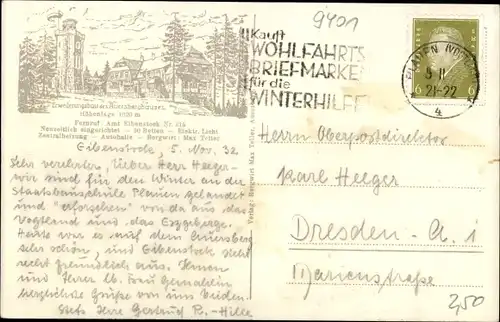 9401
Kauft
WOHLFAHRTS
BRIEFMARKEN
für die
WINTERHILFE
PLAUEN (VOGTL)
5 11
21-22
4
6 6
Höhenlage 1020 m
Fernruf Amt Eibenstock Nr. 215
Neuzeitlich eingerichtet — 50 Betten — Elektr. Licht
Zentralheizung — Autohalle — Bergwirt: Max Teller
Eibenstock, 5. Nov. 32.
Sehr verehrter, lieber Herr Heeger –
wir sind für den Winter an der
Staatsbauschule Plauen gelandet
und "erforschen" von da aus das
Vogtland und das Erzgebirge.
Heute war es auf dem Auersberg
sehr schön, und Eibenstock sieht
recht freundlich aus. Ihnen
und Ihrer lb. Frau Gemahlin
herzlichste Grüße von uns beiden.
Stets Ihre Gertrud R.-Hille
Verlag: Bergwirt Max Teller,
Herrn Oberpostinspektor
Karl Heeger
Dresden-A. 1
Marienstraße
2,50